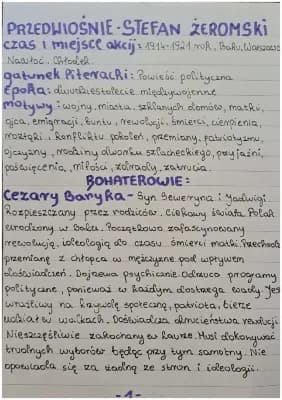 PRZEDWIOŚNIE - STEFAN ŻEROMSKI
czas i miejsce akcji: 1914-1921 rok, Baku, Warszawa
Nawłoć, Chłodek
gatunek literacki: Powieść polityczna
Epoka: dwudziestolecie międzywojenne
motywy: wojny, miasta, szklanych domów, matki,
ojca, emigracji, buntu, rewolucji, śmierci, cierpienia,
rozłąki, konfliktu pokoleń, przemiany, patriotyzmu,
ojczyzny, rodziny dworku szlacheckiego, przyjaźni,
poświęcenia, miłości, zdrady, zabrucia.
BOHATEROWIE:
Cezary Baryka - Syn Seweryna i Jadwigi.
Rozpieszczany przez rodziców. Ciekawy świata. Polak
urodzony w Baku. Początkowo zafascynowany
rewolucją, ideologią do czasu śmierci matki. Przechodzi
przemianę z chłopca w mężczyznę pod wpływem
doświadczeń. Dojrzewa psychicznie. Odrzuca programy
polityczne, ponieważ w każdym dostrzega wady. Jest
wrażliwy na krzywdę społeczną, patriota, bierze
udział w walkach. Doświadcza okrucieństwa rewolucji.
Nieszczęśliwie zakochany w Laurze. Musi dokonywać
trudnych wyborów będąc przy tym samotny. Nie
opowiada się za żadną ze stron i ideologii.
-1-